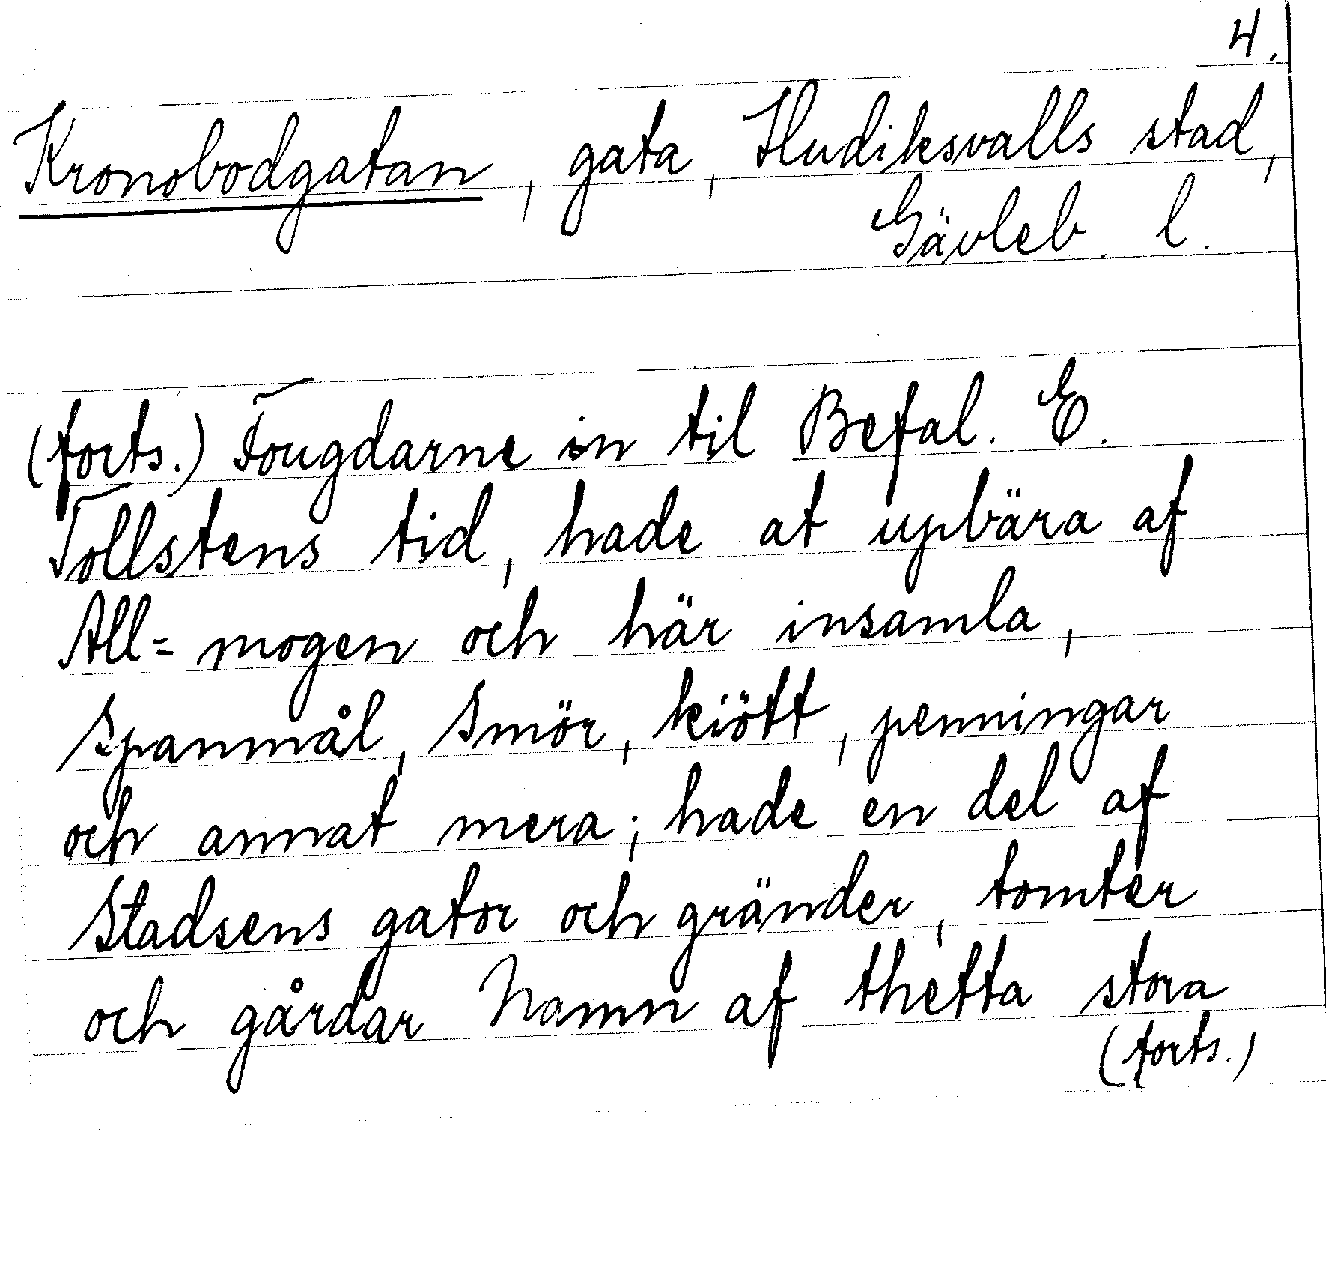 4.
Kronobodgatan, gata, Hudiksvalls stad,
Gävleb. l.
(forts.) Fougdarne in til Befal. E.
Tollstens tid, hade at upbära af
All= mogen och här insamla,
Spanmål, Smör, kiött, penningar
och annat mera; hade en del af
Stadsens gator och gränder, tomter
och gårdar Namn af thetta stora
(forts.)